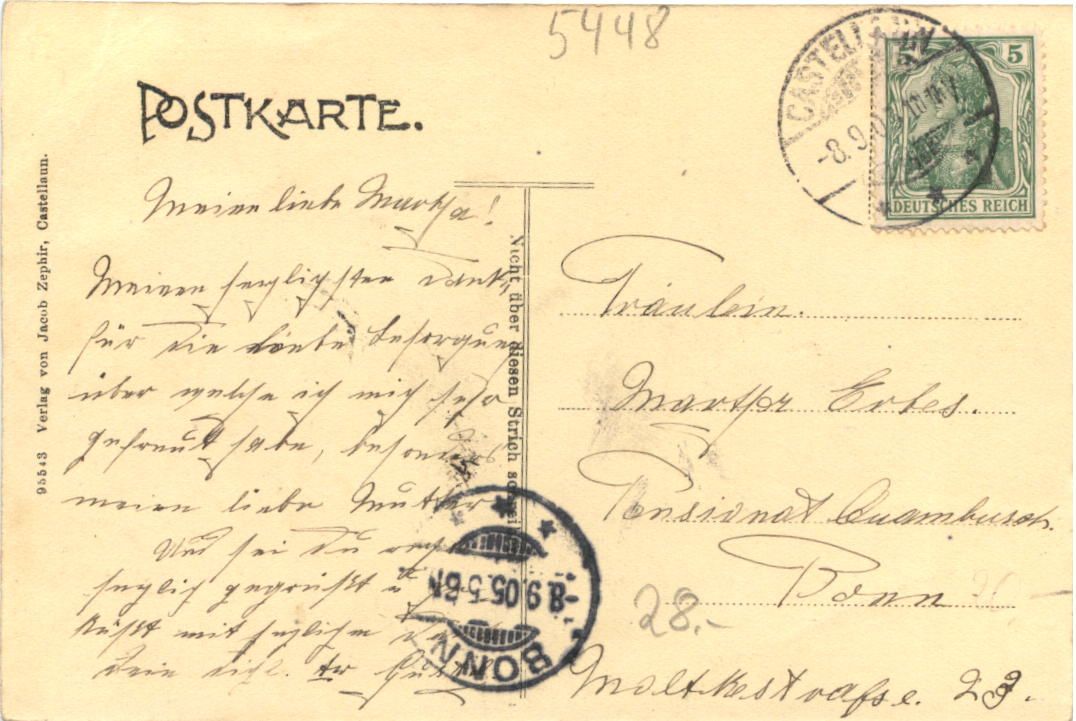 5448
POSTKARTE.
CASTELLAUN
-8.9.05
5
DEUTSCHES REICH
95543 Verlag von Jacob Zephir, Castellaun.
Nicht über diesen Strich
Meine liebe Martha!
Meinen herzlichsten Dank,
für die liebe Besorgung
über welche ich mich sehr
gefreut habe, besonders
meine liebe Mutter
Und sei du
herzlich gegrüßt u.
küßt mit herzlichem Dank
Dein
Fräulein.
Martha Erbes.
Pensionat Quambusch.
Bonn
28.-
Moltkestraße. 23.
BONN
-8.9.05.5-6N